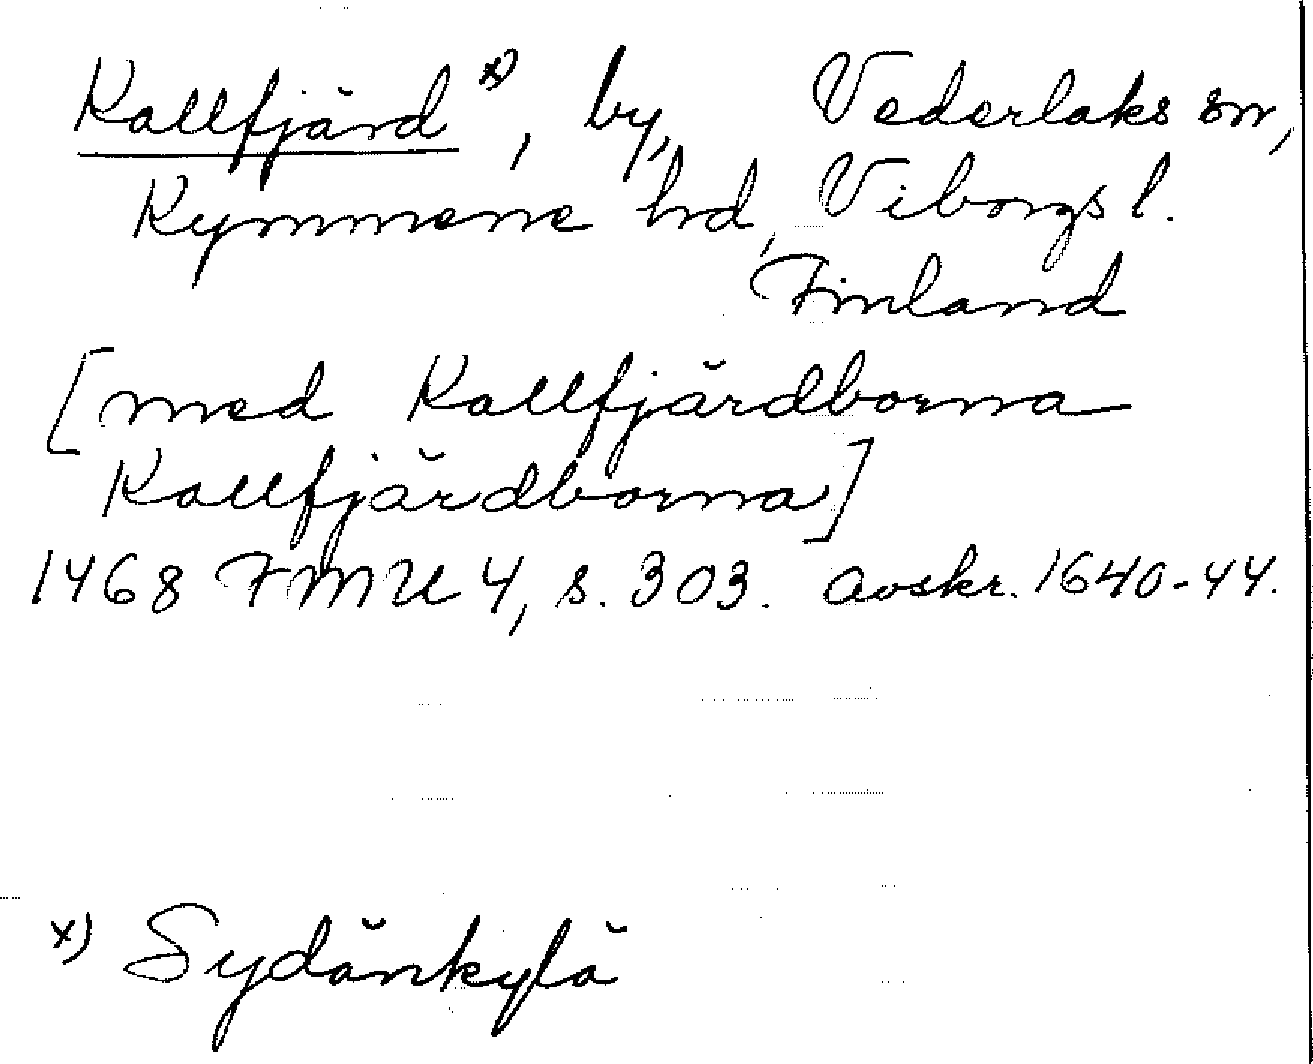 Kallfjärd x), by, Vederlaks sn,
Kymmene hd, Viborgs l.
Finland
[med Kallfjärdborna
Kallfjärdborna]
1468 FMU 4, s. 303. avskr. 1640-44.
x) Sydänkylä